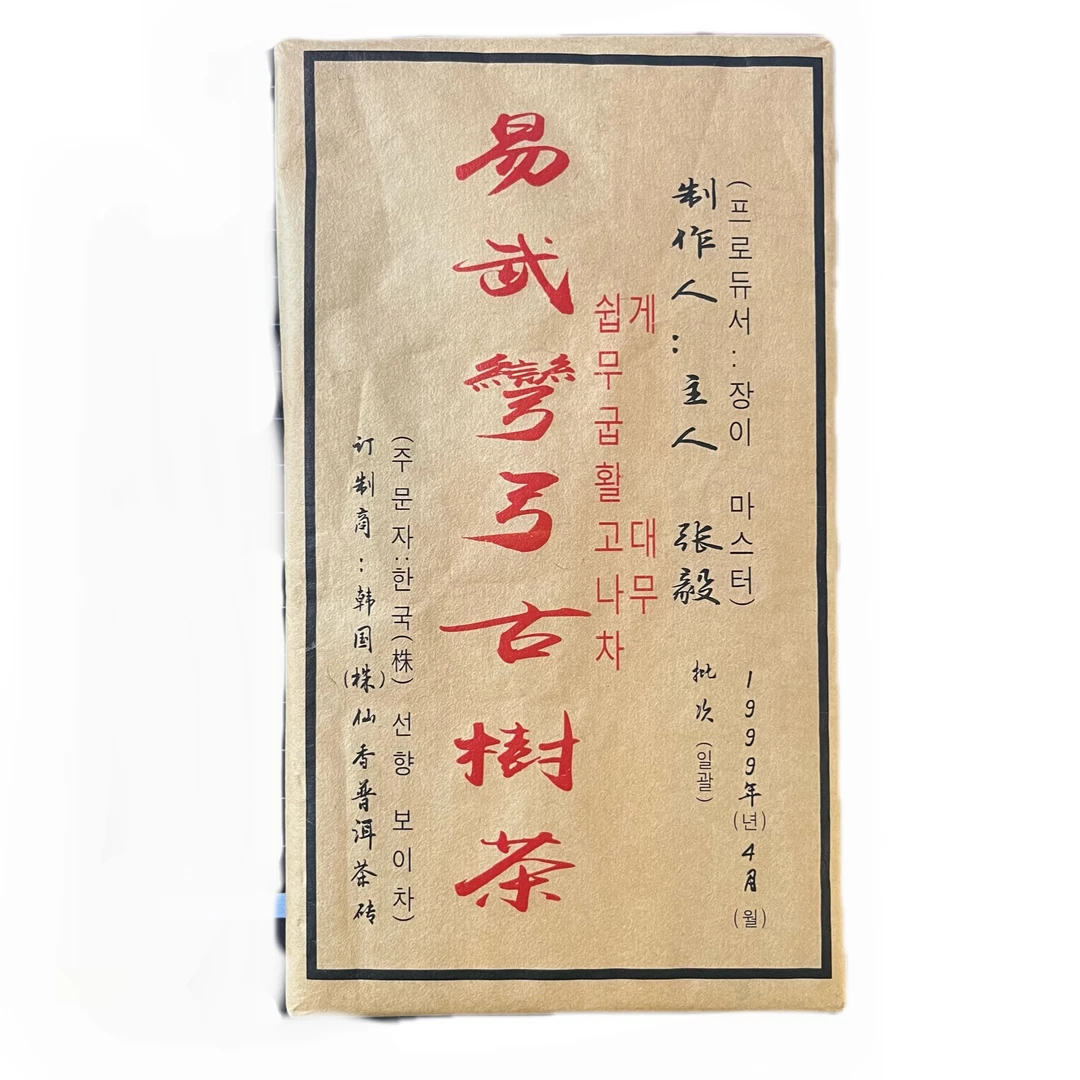 (프로듀서 : 장이 마스터)
制作人：主人 张毅
1999年(년)4月(월)
批次(일괄)
게 대무
쉽무굽활고나차
易武彎弓古樹茶
(주문자:한국(株) 선향 보이차)
订制商：韩国(株)仙香普洱茶砖